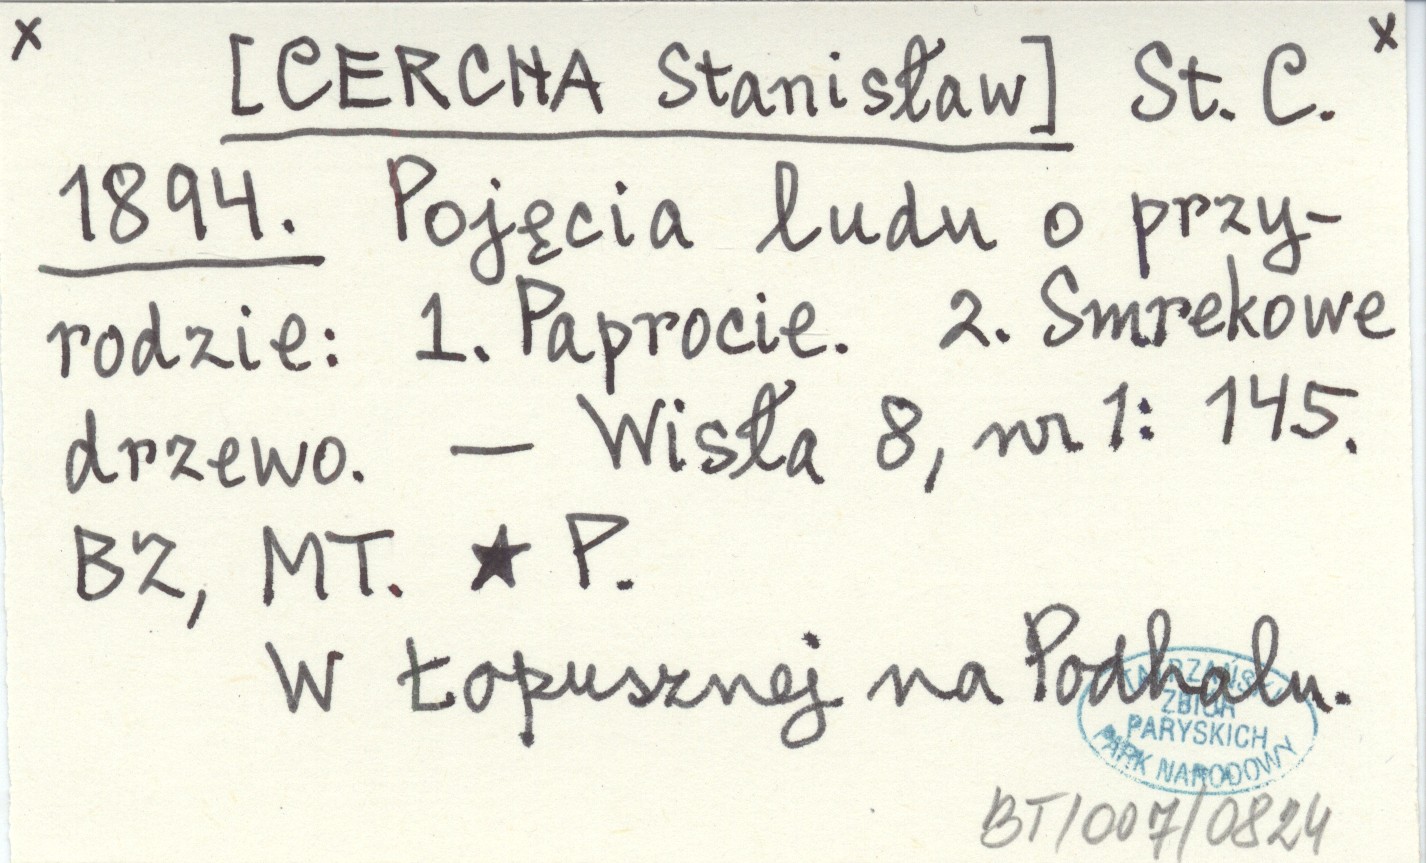 x [CERCHA Stanisław] St. C. x
1894. Pojęcia ludu o przy-
rodzie: 1. Paprocie. 2. Smrekowe
drzewo. — Wisła 8, nr 1: 145.
BZ, MT. ★ P.
W Łopusznej na Podhalu.
TATRZAŃSKI
ZBIÓR
PARYSKICH
PARK NARODOWY
BT/007/0824